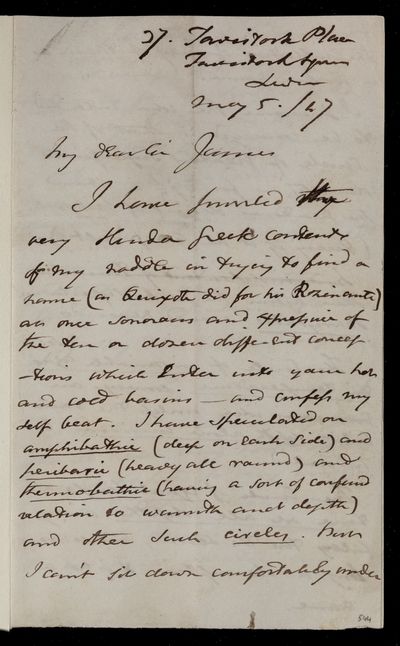 27. Tavistock Place
Tavistock Square
London
May 5. /47
My dear Sir James
I have very
slender Greek contents
of my noddle in trying to find a
name (as Quixote did for his Rozinante)
at once sonorous and expressive of
the ten or dozen different concep-
-tions which enter into your hot
and cold basins — and confess my
self beat. I have speculated on
amphibathic (deep on each side) and
peribaric (heavy all round) and
thermobathic (having a sort of confused
relation to warmth and depth)
and other such circles. But
I can't sit down comfortably under
544